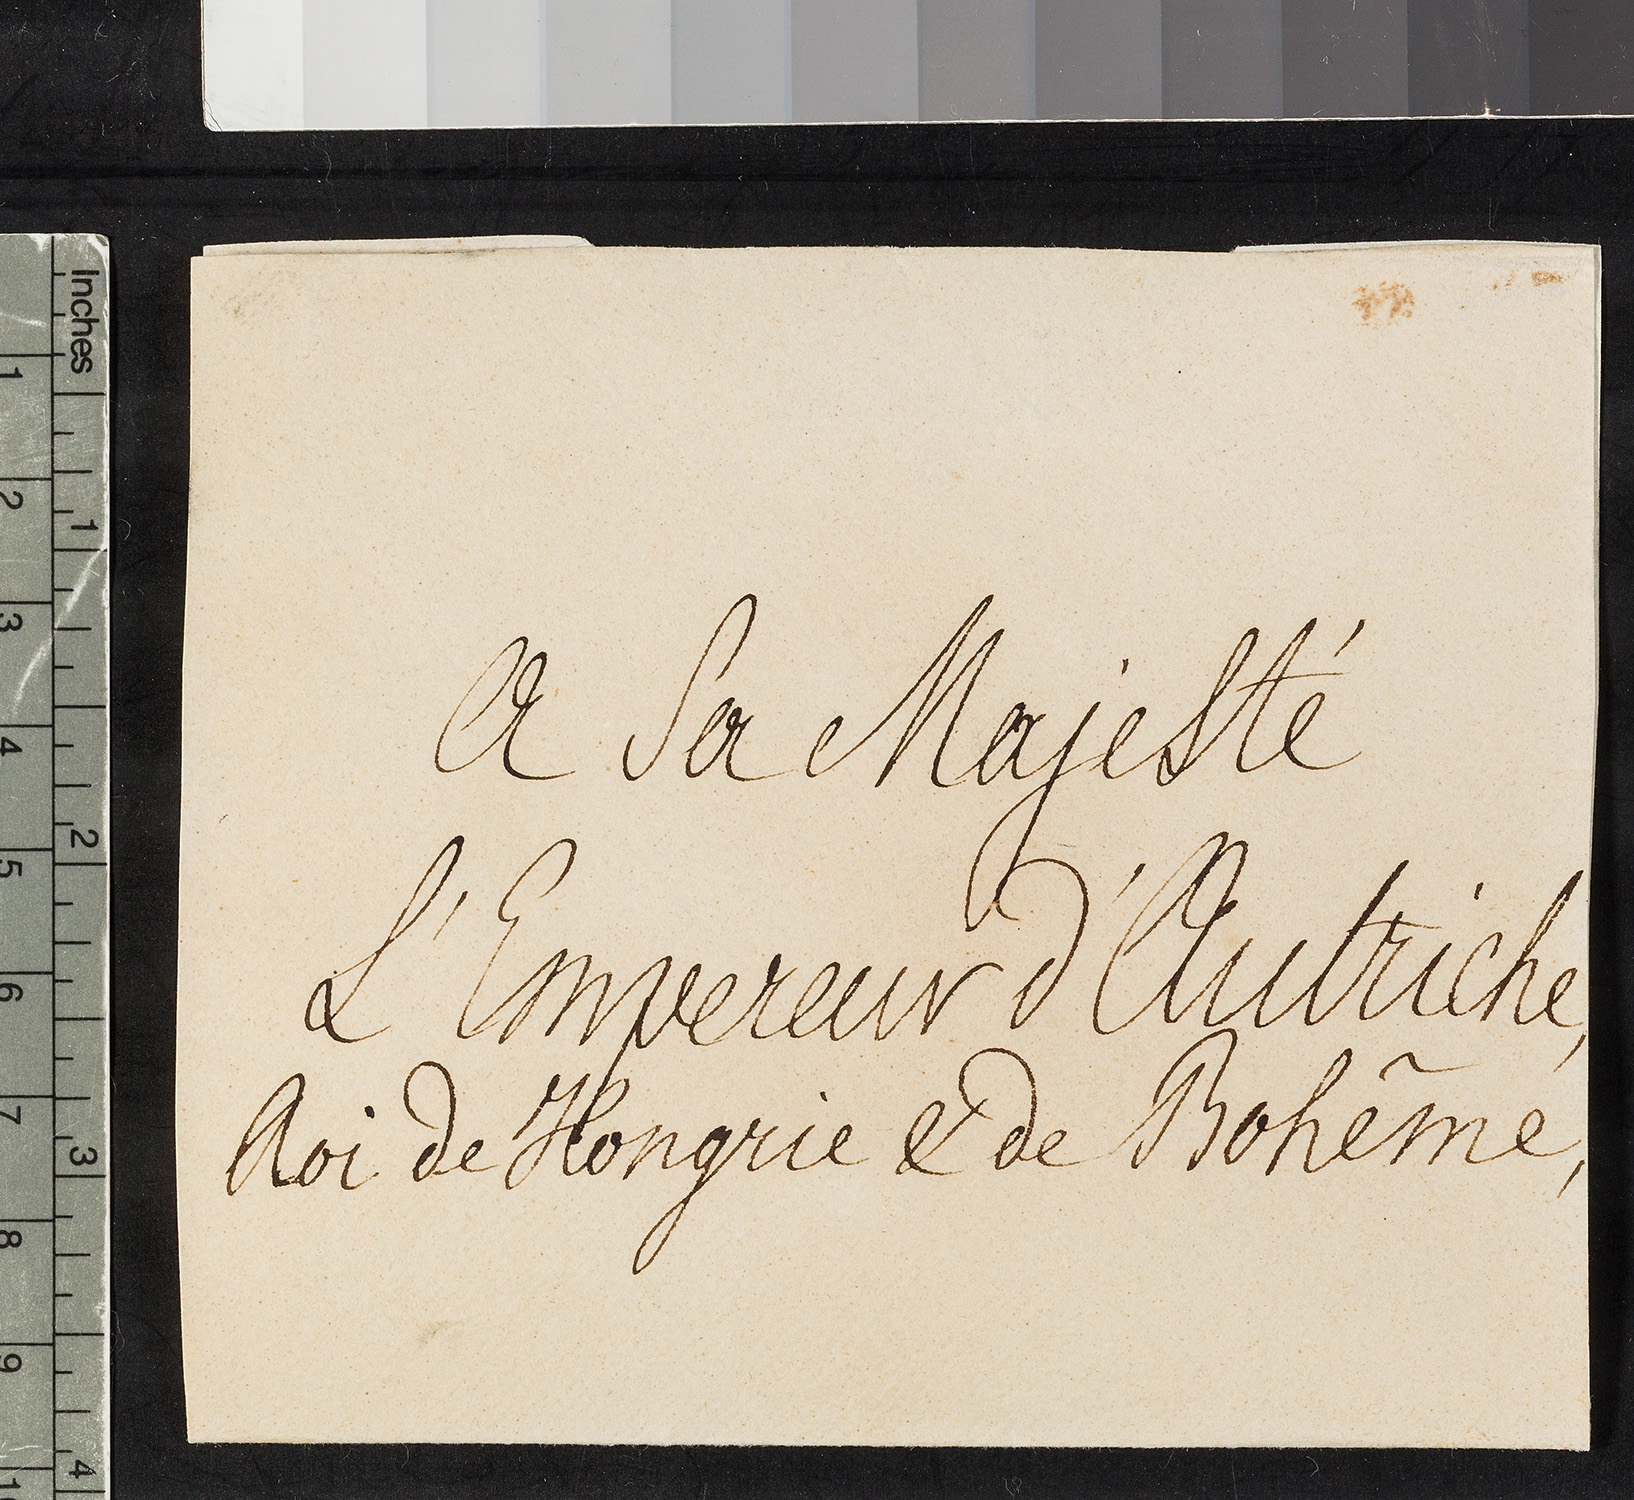 Inches
1
2
3
4
5
6
7
8
9
1
2
3
4
A Sa Majesté
L'Empereur d'Autriche,
Roi de Hongrie & de Bohême,